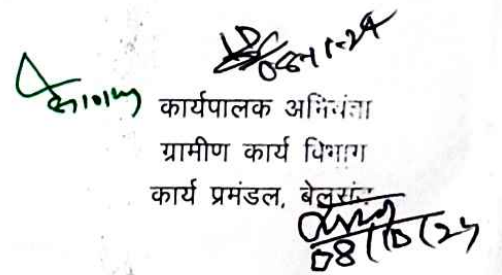 08-11-24
कार्यपालक अभियंता
ग्रामीण कार्य विभाग
कार्य प्रमंडल, बेलसंड
08/10/24